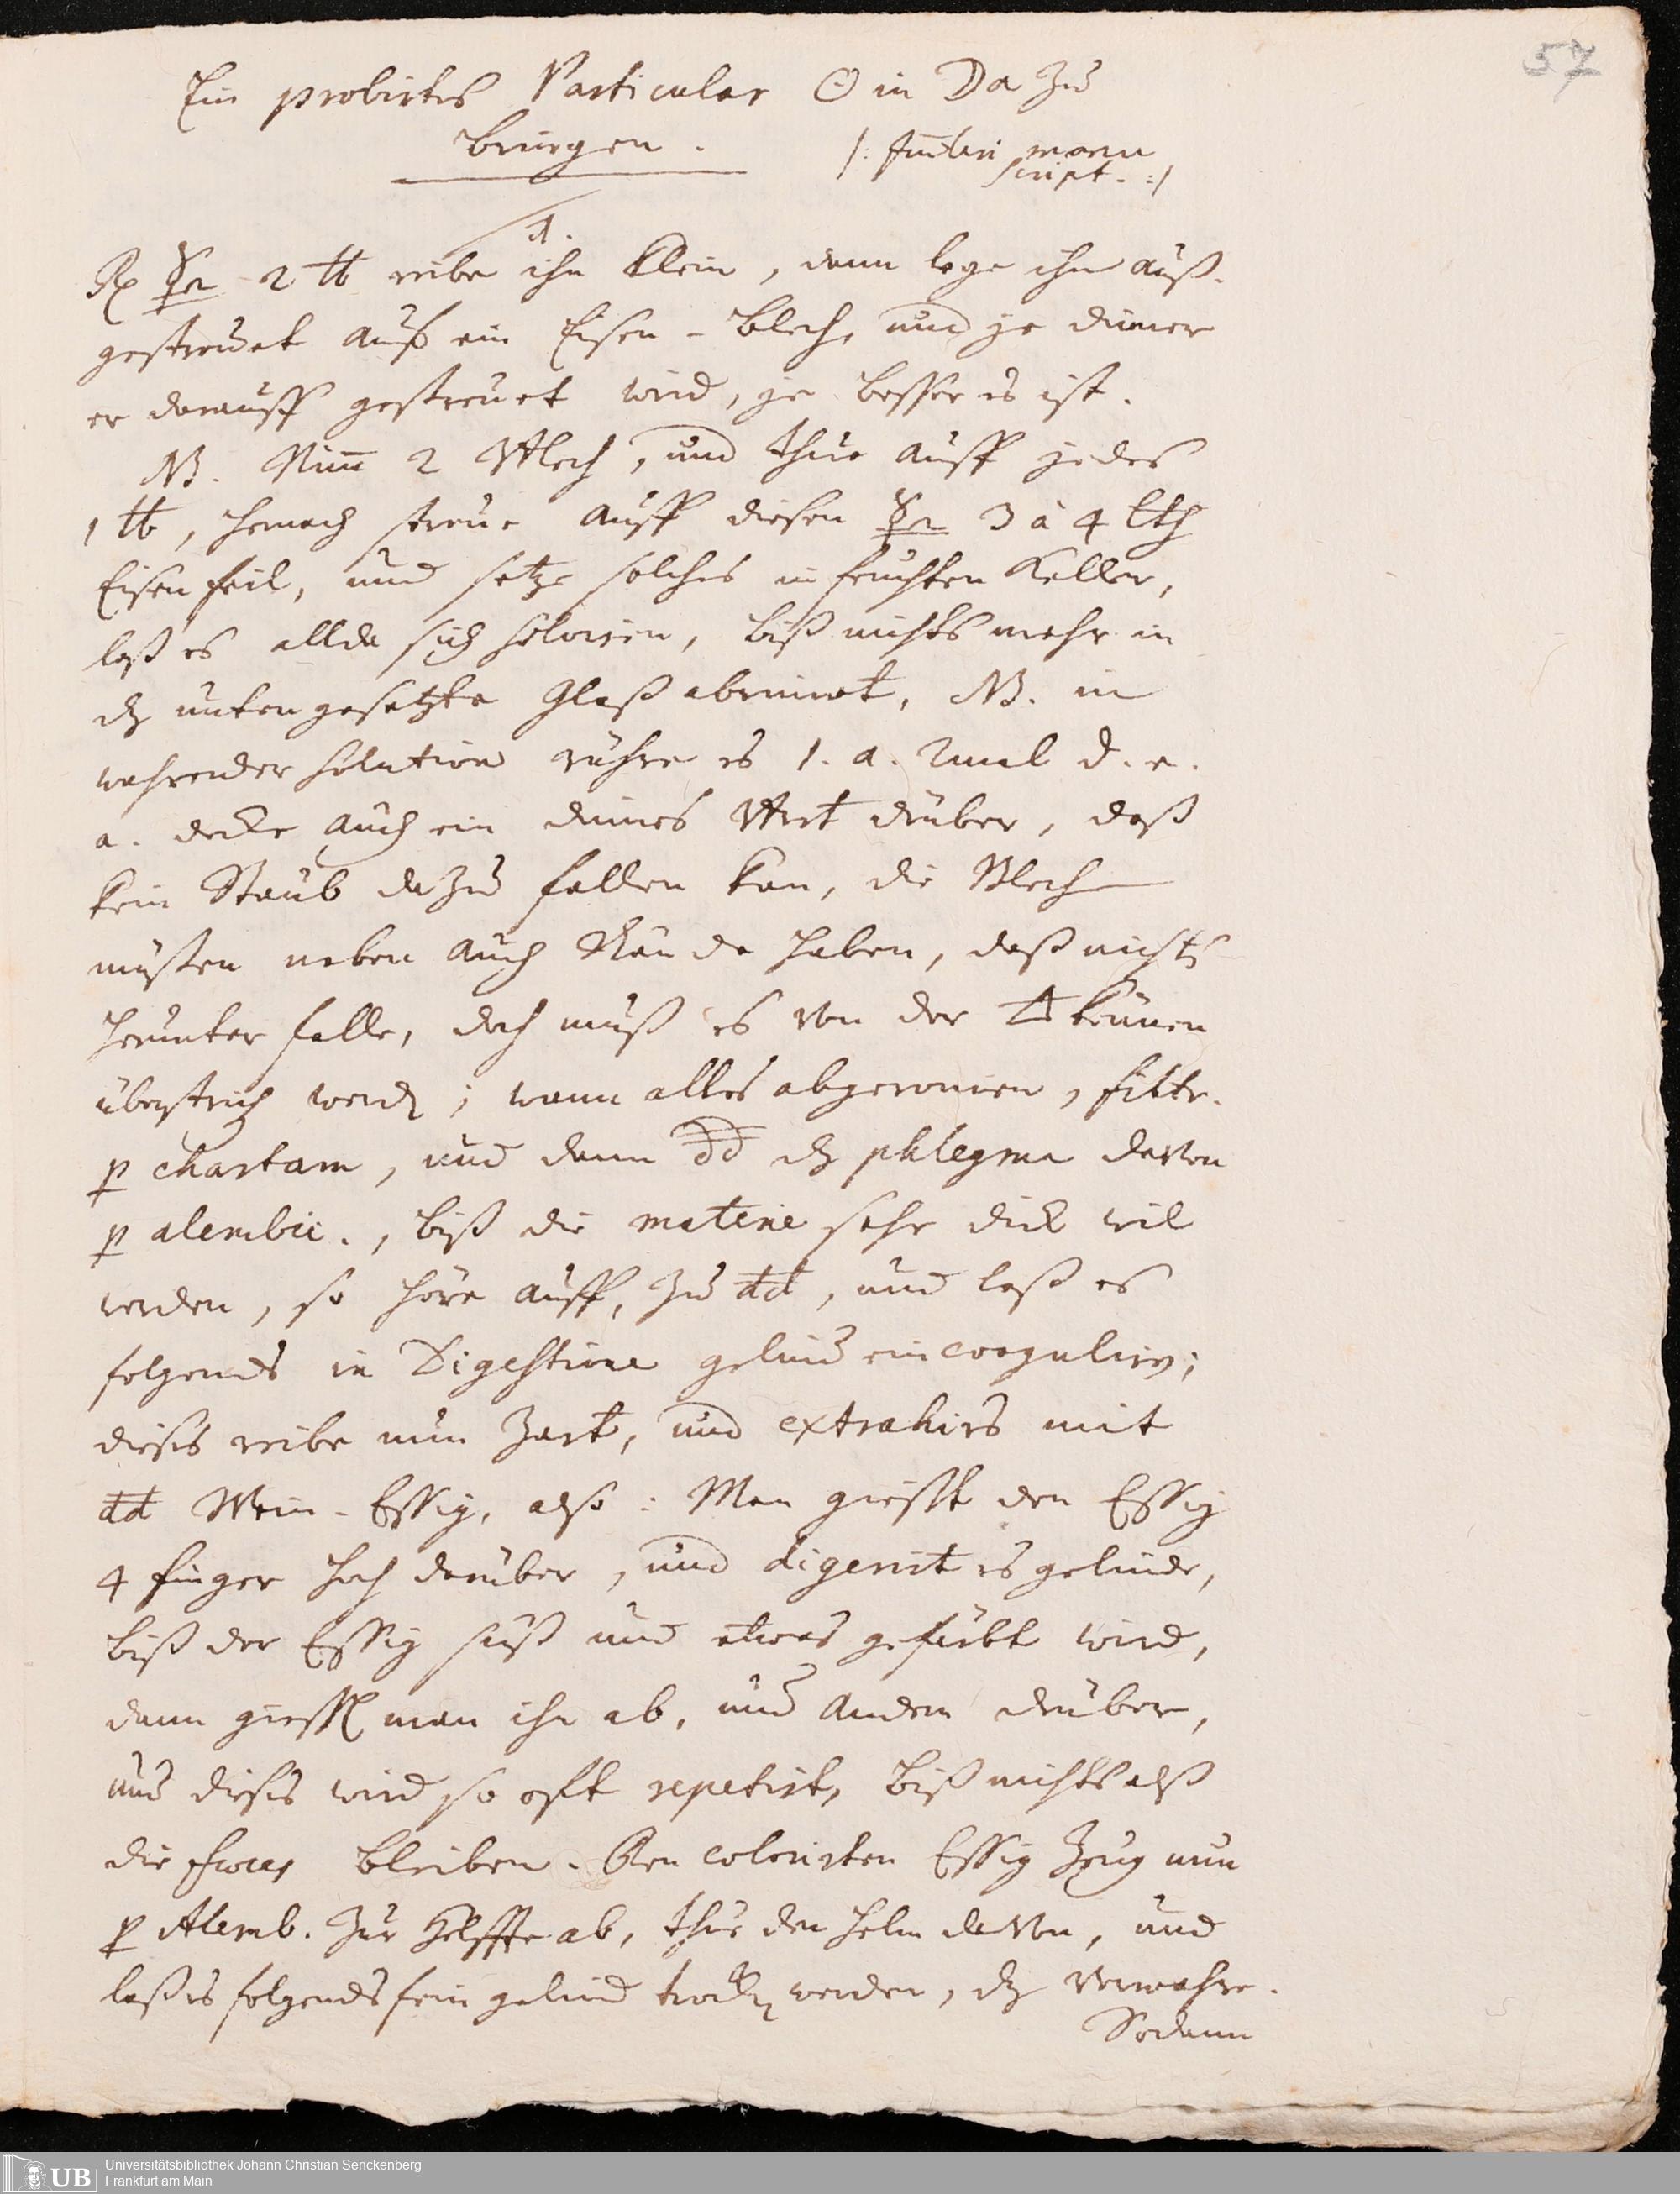 57
Ein probirtes Particular ☉ in Da zu
bringen.
/: manu
script. :/
1.
℞ 2 ℔ reibe ihn klein, dann lege ihn auß-
gestreuet auff ein Eisen-Blech, und je dünner
er darauff gestreuet wird, je besser es ist.
NB. Nim̄ 2 Blech, und thue auff jedes
1 ℔, hernach streue auff diesen 3 à 4 lth
Eisenfeil, und setze solches in feuchten Keller,
laß es allda sich solviren, biß nichts mehr in
dz untengesetzte Glaß abrinnet, NB. in
wehrender solution rühre es 1. a. 2mal d. e.
a. decke auch ein dünnes Bret drüber, daß
kein Staub dazu fallen kan, die Blech
müsten neben auch Rände haben, daß nichts
herunter falle, doch muß es von der können
überstrich werdn; wann alles abgeronnen, filtr.
p chartam, und dann dd dz phlegma davon
p alembic., biß die materie sehr dick wil
werden, so höre auff, zu dd, und laß es
folgends in Digestione gelind ein coagulirn;
dieses reibe nun zart, und extrahirs mit
dd Wein-Essig, also: Man giesst den Essig
4 finger hoch darüber, und digerirt es gelinde,
biß der Essig süß und etwas gefärbt wird,
dann giesst man ihn ab, und andern drüber,
und dieses wird so oft repetirt, biß nichts alß
die fæces bleiben. Den colorirten Essig zeug nun
p Alemb. zur Helffte ab, thue den Helm davon, und
laß es folgends fein gelind trockn werden, dz verwahre.
Sodann
UB
Universitätsbibliothek Johann Christian Senckenberg
Frankfurt am Main